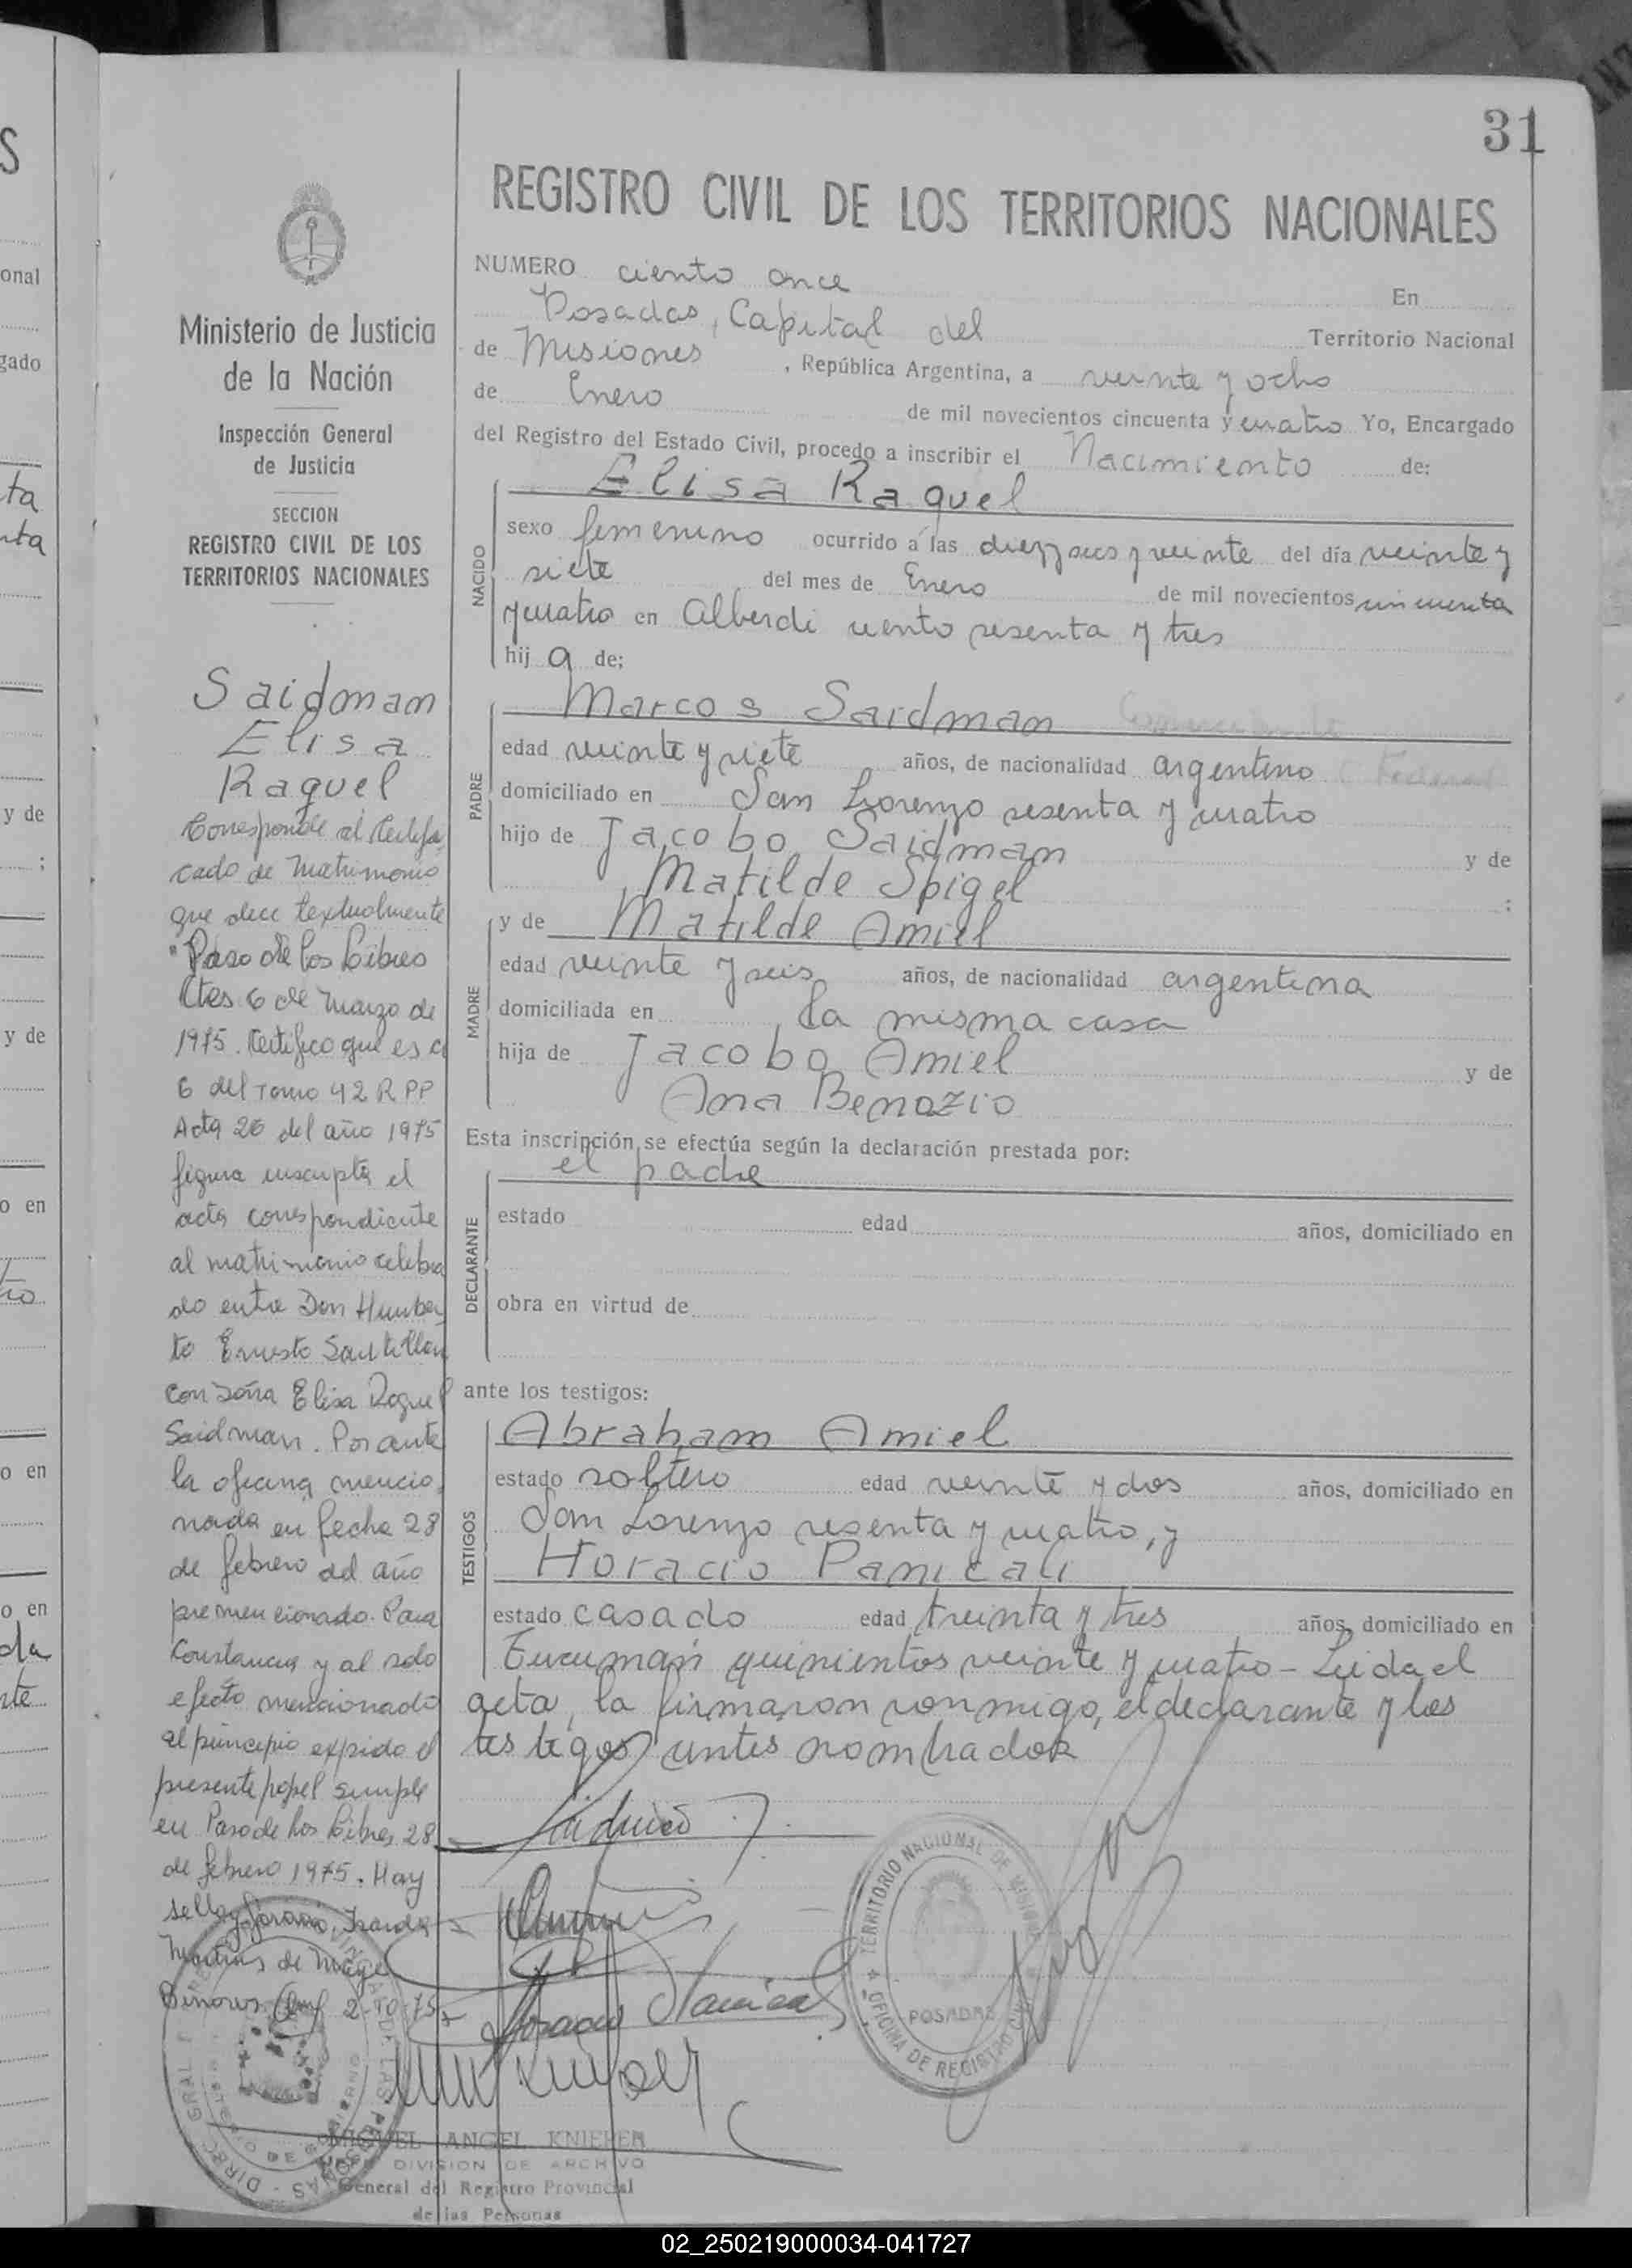 31
REGISTRO CIVIL DE LOS TERRITORIOS NACIONALES
Ministerio de Justicia
de la Nación
Inspección General
de Justicia
SECCION
REGISTRO CIVIL DE LOS
TERRITORIOS NACIONALES
Saidman
Elisa
Raquel
Corresponde al Certifi
cado de Matrimonio
que dice textualmente
"Paso de los Libres
Ctes 6 de Marzo de
1975. Certifico que es a
6 del Tomo 42 R PP
Acta 26 del año 1975
figura inscripta el
acta correspondiente
al matrimonio celebra
do entre Don Humber
to Ernesto Santillan
con Doña Elisa Raquel
Saidman. Por ante
la oficina mencio
nada en fecha 28
de febrero del año
premencionado. Para
Constancia y al solo
efecto mencionado
al principio expido el
presente papel simple
en Paso de los Libres 28
de febrero 1975. Hay
sello
Martins de
2-10-75
NUMERO ciento once En
Posadas, Capital del Territorio Nacional
de Misiones, República Argentina, a veinte y ocho
de Enero de mil novecientos cincuenta y cuatro Yo, Encargado
del Registro del Estado Civil, procedo a inscribir el Nacimiento de:
NACIDO
Elisa Raquel
sexo femenino ocurrido a las diez seis y veinte del día veinte y
siete del mes de Enero de mil novecientos cincuenta
y cuatro en Alberdi ciento sesenta y tres
hija de;
PADRE
Marcos Saidman
edad veinte y siete años, de nacionalidad argentino
domiciliado en San Lorenzo sesenta y cuatro
hijo de Jacobo Saidman y de
Matilde Spigel ;
MADRE
y de Matilde Amiel
edad veinte y seis años, de nacionalidad argentina
domiciliada en la misma casa
hija de Jacobo Amiel y de
Ana Benozio
Esta inscripción se efectúa según la declaración prestada por:
DECLARANTE
el padre
estado edad años, domiciliado en
obra en virtud de
ante los testigos:
TESTIGOS
Abraham Amiel
estado soltero edad veinte y dos años, domiciliado en
San Lorenzo sesenta y cuatro, y
Horacio Panicali
estado casado edad treinta y tres años, domiciliado en
Tucumán quinientos veinte y cuatro - Leida el
acta, la firmaron conmigo, el declarante y los
testigos antes nombrados
TERRITORIO NACIONAL DE MISIONES
POSADAS
OFICINA DE REGISTRO CIVIL
MIGUEL ANGEL KNIEPER
DIVISION DE ARCHIVO
General del Registro Provincial
de las Personas
02_250219000034-041727